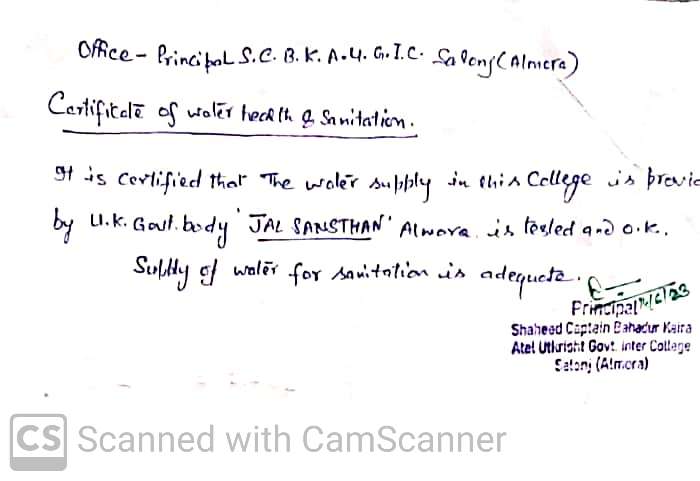 Office - Principal S.C.B.K.A.U.G.I.C. Salonj (Almora)
Certificate of water health & Sanitation.
It is certified that The water supply in this College is provid
by U.K. Govt. body 'JAL SANSTHAN' Almora is tested and O.K.
Supply of water for sanitation is adequate.
Principal
Shaheed Captain Bahadur Kaira
Atal Utkrisht Govt. Inter College
Salonj (Almora)
CS Scanned with CamScanner